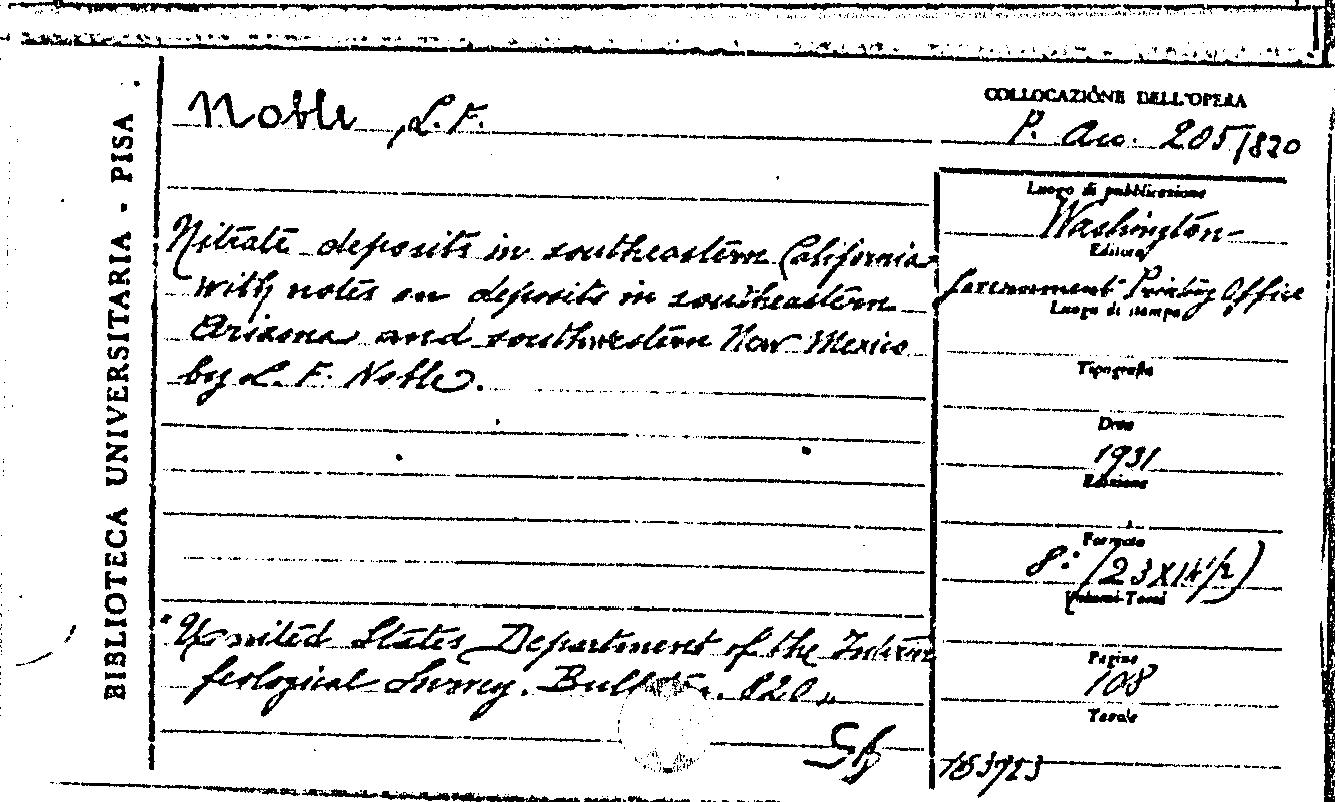 BIBLIOTECA UNIVERSITARIA - PISA
Noble, L. F.
COLLOCAZIONE DELL'OPERA
P. Acc. 205/820
Nitrate deposits in southeastern California
with notes on deposits in southeastern
Arizona and southwestern New Mexico
by L. F. Noble.
"United States Department of the Interior
Geological Survey. Bulletin. 820"
Luogo di pubblicazione
Washington
Editore
Government Printing Office
Luogo di stampa
Tipografia
Data
1931
Edizione
Formato
8.° (23X14 1/2)
Volumi-Tomi
Pagine
108
Tavole